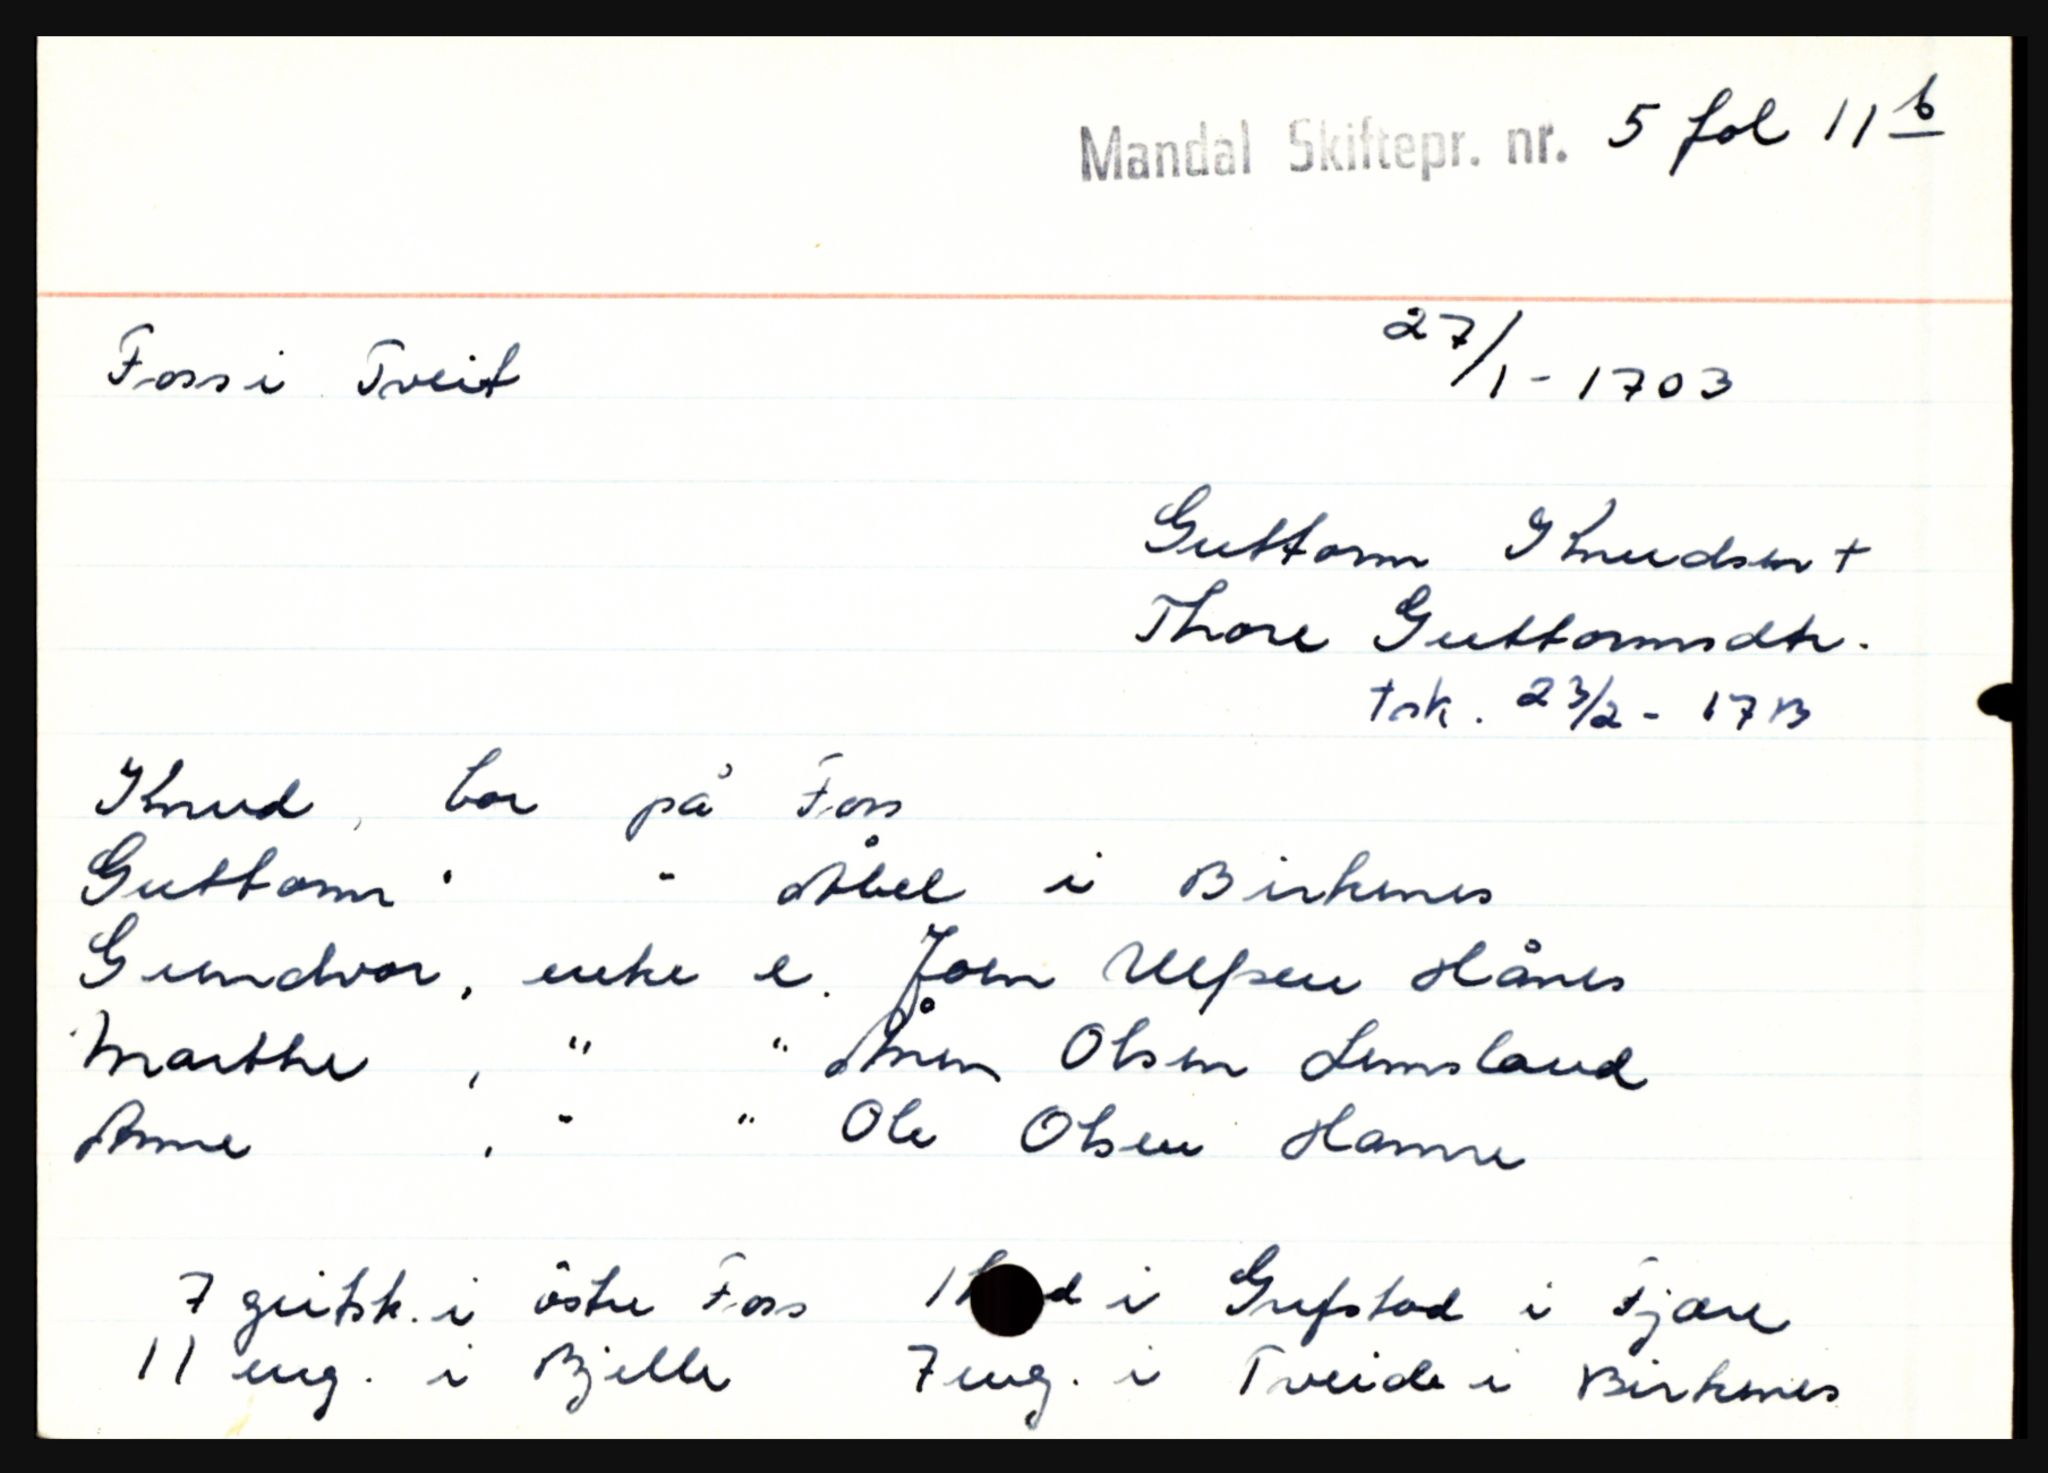 Mandal Skiftepr. nr. 5 fol 11 b
Foss i Tveit 27/1-1703
Guttorm Knudsen +
Thore Guttormsdtr.
tsk. 23/2 - 1713
Knud, bor på Foss
Guttorm " " Åbel i Birkenes
Gundvor, enke e. Joen Ulfsen Hånes
Marthe, " " Ånen Olsen Lemsland
Anne, " " Ole Olsen Hamre
7 geitsk. i östre Foss 1 h d i Grefstad i Fjære
11 eng. i Bjelle 7 eng. i Tveide i Birkenes